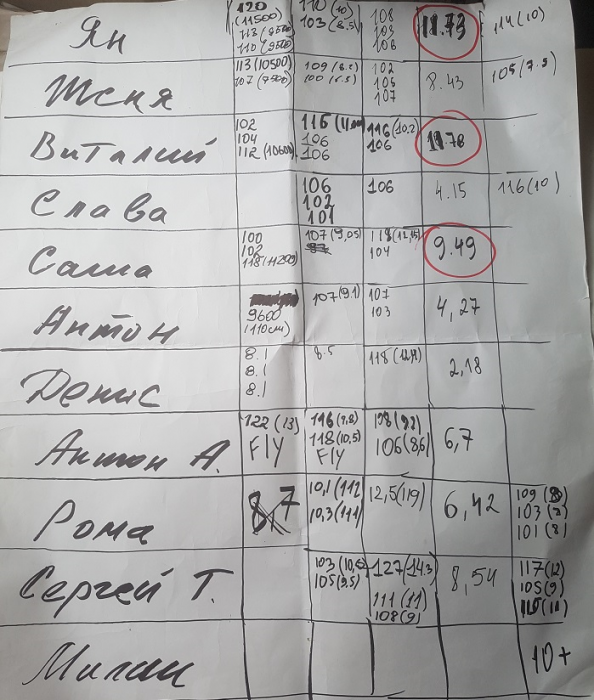 Ян
120
(11500)
113 (9500)
110 (9500)
110 (10)
103 (8.5)
108
103
106
11.73
114 (10)
Женя
113 (10500)
107 (9500)
109 (8.5)
100 (6.5)
102
105
107
8.43
105 (7.5)
Виталий
102
104
112 (10600)
115
106
106
116 (10,2)
106
11.78
Слава
106
102
101
106
4.15
116 (10)
Саша
100
102
118 (11200)
107 (9,05)
118 (12,15)
104
9.49
Антон
9600
(110см)
107 (9.1)
107
103
4,27
Денис
8.1
8.1
8.1
8.5
118
2,18
Антон А.
122 (13)
Fly
116 (9,8)
118 (10,5)
Fly
108 (9,2)
106 (8,6)
6,7
Рома
8,7
10,1 (112
10,3 (111)
12,5 (119)
6,42
109 (8)
103 (8)
101 (8)
Сергей Т.
103 (10,6)
105 (9.5)
127 (14.3)
111 (11)
108 (9)
8,54
117 (12)
105 (9)
115 (11)
Милан
10+